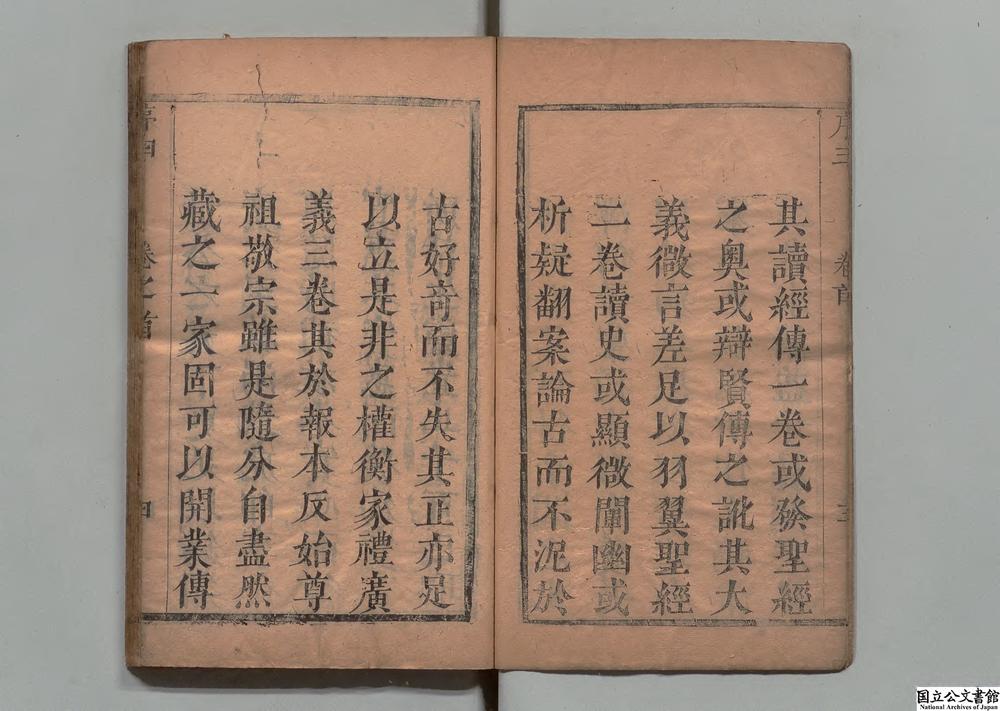 序三
卷首
三
其讀經傳一卷或發聖經
之奧或辯賢傳之訛其大
義微言差足以羽翼聖經
二卷讀史或顯微闡幽或
析疑翻案論古而不泥於
古好奇而不失其正亦足
以立是非之權衡家禮廣
義三卷其於報本反始尊
祖敬宗雖是隨分自盡然
藏之一家固可以開業傳
序四
卷之首
四
国立公文書館
National Archives of Japan